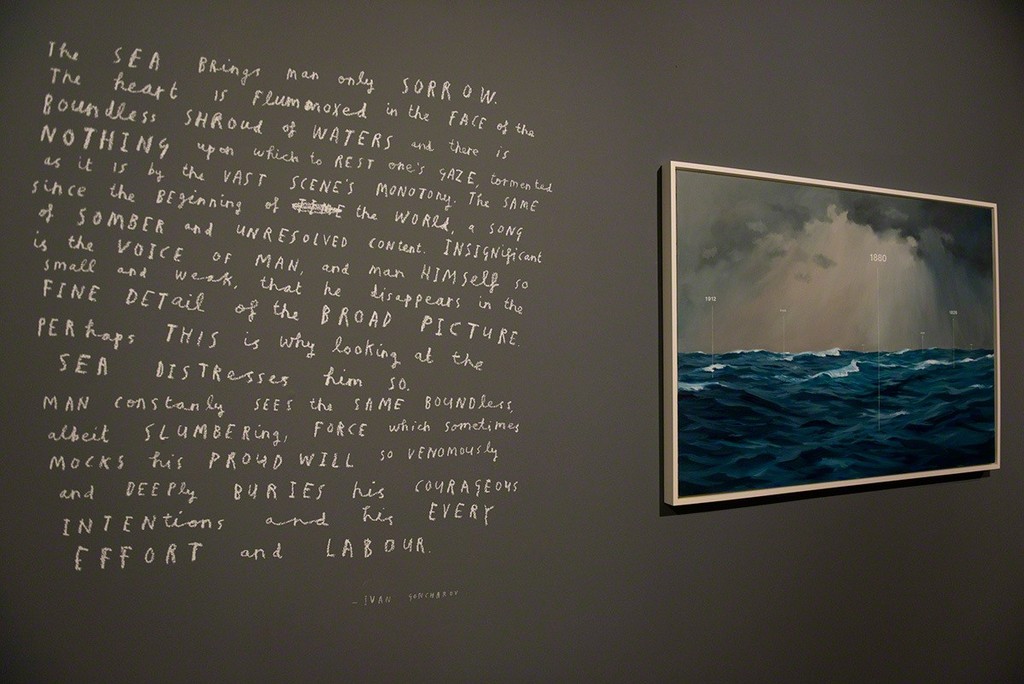 The SEA BRings man only SORROW.
The heart is Flummoxed in the FACE of the
BOUNdless SHROud of WATERS and there is
NOTHING upon which to REST one's GAZE, tormented
as it is by the VAST SCENE'S MONOTONY. The SAME
since the BEginning of the WORLD, a SONG
of SOMBER and UNRESOLVED content. INSIGNificant
is the VOICE OF MAN, and man HIMself so
small and weak, that he disappears in the
FINE DETAil of the BROAD PICTURE.
PERhaps THIS is why looking at the
SEA DISTResses him so.
MAN constanly SEES the SAME BOUNdless,
albeit SLUMBERing, FORCE which sometimes
MOCKS his PROUD WILL so VENOMously
and DEEPly BURIES his COURAGEOUS
INTENtions and his EVERY
EFFORT and LABOUR.
– IVAN GONCHAROV
1880
1912